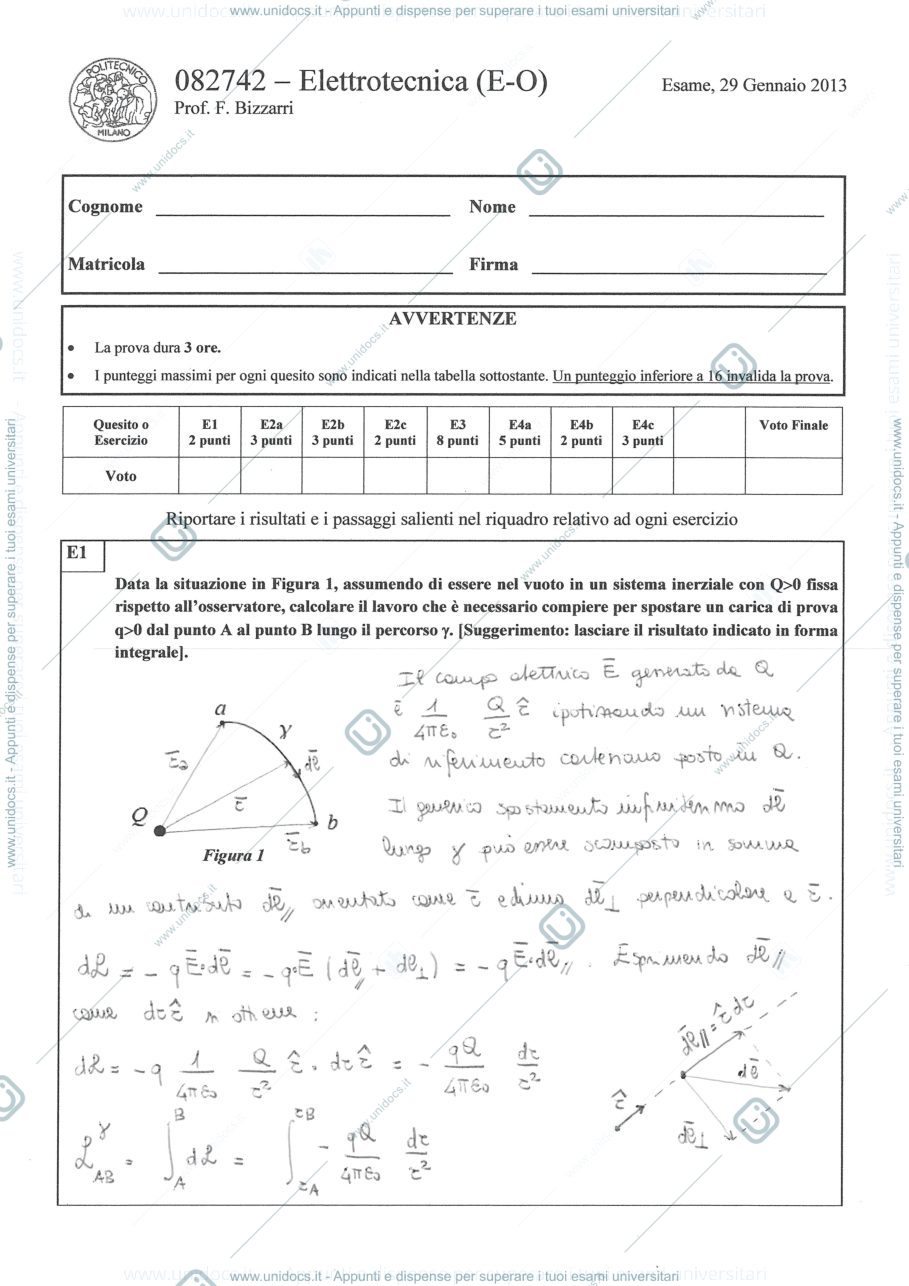 www.unidocs.it - Appunti e dispense per superare i tuoi esami universitari
POLITECNICO
MILANO
082742 – Elettrotecnica (E-O)
Esame, 29 Gennaio 2013
Prof. F. Bizzarri
Cognome
Nome
Matricola
Firma
AVVERTENZE
• La prova dura 3 ore.
• I punteggi massimi per ogni quesito sono indicati nella tabella sottostante. Un punteggio inferiore a 16 invalida la prova.
Quesito o Esercizio E1 2 punti E2a 3 punti E2b 3 punti E2c 2 punti E3 8 punti E4a 5 punti E4b 2 punti E4c 3 punti Voto Finale
Voto
Riportare i risultati e i passaggi salienti nel riquadro relativo ad ogni esercizio
E1
Data la situazione in Figura 1, assumendo di essere nel vuoto in un sistema inerziale con Q>0 fissa
rispetto all'osservatore, calcolare il lavoro che è necessario compiere per spostare un carica di prova
q>0 dal punto A al punto B lungo il percorso γ. [Suggerimento: lasciare il risultato indicato in forma
integrale].
Il campo elettrico Ē generato da Q
è 1/4πε₀ Q/r² r̂ ipotizzando un sistema
di riferimento cartesiano posto in Q.
Il generico spostamento infinitesimo dl̄
lungo γ può essere scomposto in somma
a
γ
dl̄
r̄a
r̄
Q
b
r̄b
Figura 1
di un contributo dl̄∥ orientato come r̄ ed uno dl̄⊥ perpendicolare a r̄.
dL = - q Ē·dl̄ = - q·Ē (dl̄∥ + dl̄⊥) = - q Ē·dl̄∥. Esprimendo dl̄∥
come dr r̂ si ottiene :
dL = - q 1/4πε₀ Q/r² r̂ · dr r̂ = - qQ/4πε₀ dr/r²
L^γ_AB = ∫_A^B dL = ∫_rA^rB - qQ/4πε₀ dr/r²
dl̄∥ = r̂ dr
dl̄
r̂
dl̄⊥
www.unidocs.it - Appunti e dispense per superare i tuoi esami universitari